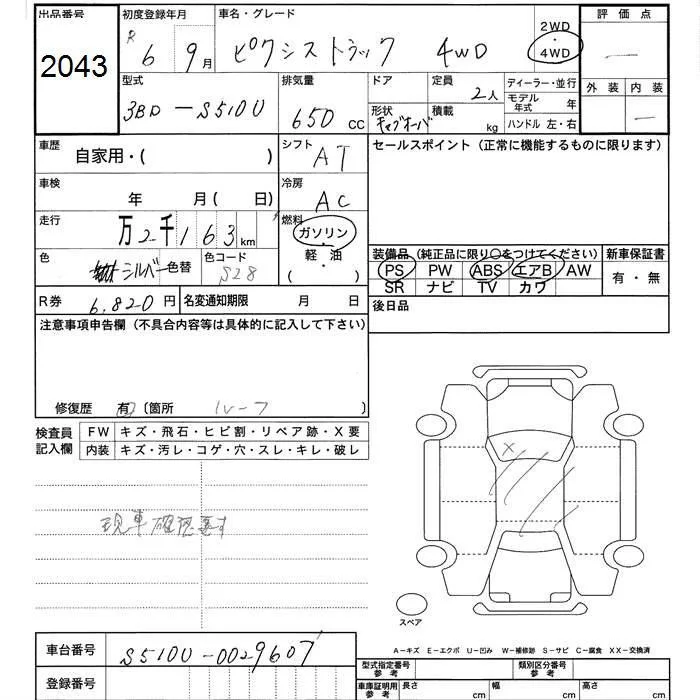 出品番号
2043
初度登録年月
R 6 9月
車名・グレード
ピクシストラック 4WD
2WD
・
4WD
評価点
—
型式
3BD-S510U
排気量
650 CC
ドア
形状 キャブオーバ
定員
2人
積載
kg
ディーラー・並行
モデル年式 年
ハンドル 左・右
外装 内装
—
車歴
自家用・( )
シフト
AT
セールスポイント(正常に機能するものに限ります)
車検
年 月( 日)
冷房
AC
走行
万2千163km
燃料
ガソリン
・
軽油
( )
色
シルバー
色替
色コード
S28
装備品(純正品に限り〇をつけてください)
PS PW ABS エアB AW
SR ナビ TV カワ
新車保証書
有・無
R券 6,820円
名変通知期限 月 日
後日品
注意事項申告欄(不具合内容等は具体的に記入して下さい)
修復歴 有 (箇所 ルーフ )
検査員
記入欄
FW キズ・飛石・ヒビ割・リペア跡・X要
内装 キズ・汚レ・コゲ・穴・スレ・キレ・破レ
X
現車確認要す
スペア
A-キズ E-エクボ U-凹み W-補修跡 S-サビ C-腐食 XX-交換済
車台番号 S510U-0029607
登録番号
型式指定番号
参考
類別区分番号
参考
車庫証明用
参考
長さ cm
幅 cm
高さ cm